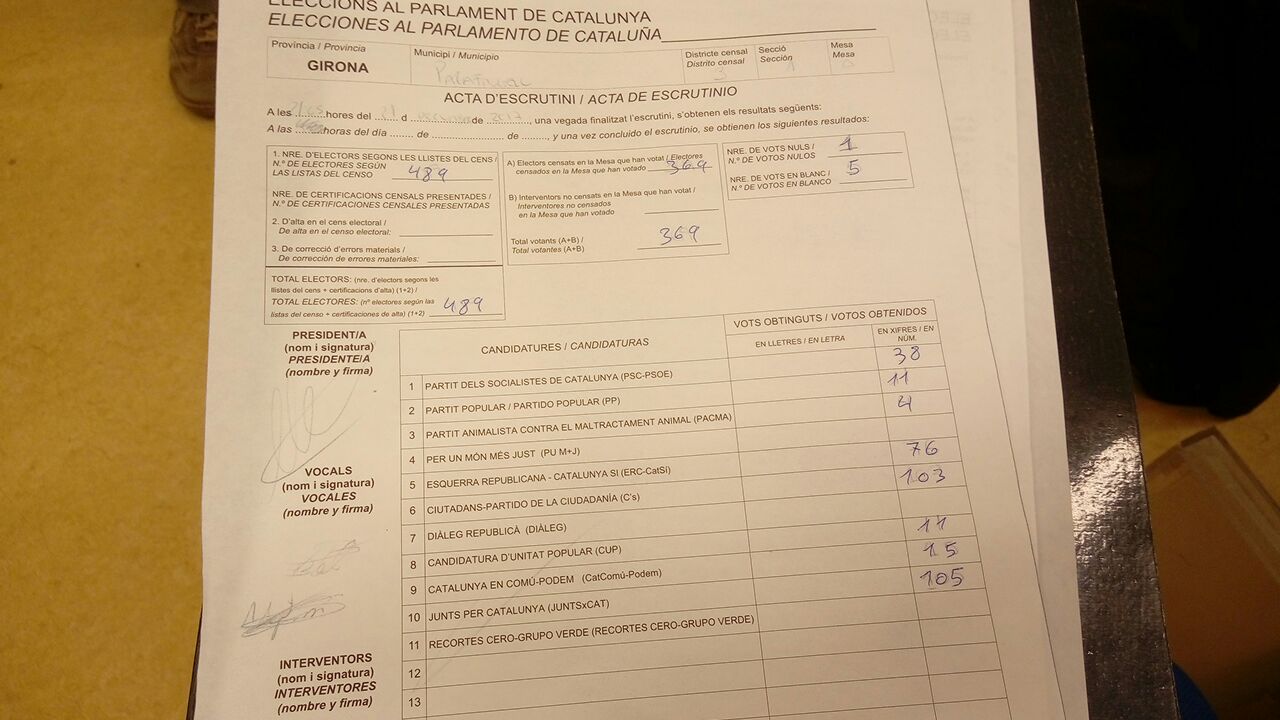 ELECCIONS AL PARLAMENT DE CATALUNYA
ELECCIONES AL PARLAMENTO DE CATALUÑA
Província / Provincia
GIRONA
Municipi / Municipio
Districte censal
Distrito censal
3
Secció
Sección
1
Mesa
Mesa
ACTA D'ESCRUTINI / ACTA DE ESCRUTINIO
A les ........ hores del ... 21 ... d ............ de ... 2017 ..., una vegada finalitzat l'escrutini, s'obtenen els resultats següents:
A las ........ horas del día ....... de ........................ de ........, y una vez concluido el escrutinio, se obtienen los siguientes resultados:
1. NRE. D'ELECTORS SEGONS LES LLISTES DEL CENS /
N.º DE ELECTORES SEGÚN
LAS LISTAS DEL CENSO 489
NRE. DE CERTIFICACIONS CENSALS PRESENTADES /
N.º DE CERTIFICACIONES CENSALES PRESENTADAS
2. D'alta en el cens electoral /
De alta en el censo electoral:
3. De correcció d'errors materials /
De corrección de errores materiales:
TOTAL ELECTORS: (nre. d'electors segons les
llistes del cens + certificacions d'alta) (1+2) /
TOTAL ELECTORES: (nº electores según las
listas del censo + certificaciones de alta) (1+2) 489
A) Electors censats en la Mesa que han votat / Electores
censados en la Mesa que han votado 369
B) Interventors no censats en la Mesa que han votat /
Interventores no censados
en la Mesa que han votado
Total votants (A+B) /
Total votantes (A+B) 369
NRE. DE VOTS NULS /
N.º DE VOTOS NULOS 1
NRE. DE VOTS EN BLANC /
N.º DE VOTOS EN BLANCO 5
PRESIDENT/A
(nom i signatura)
PRESIDENTE/A
(nombre y firma)
VOCALS
(nom i signatura)
VOCALES
(nombre y firma)
INTERVENTORS
(nom i signatura)
INTERVENTORES
(nombre y firma)
CANDIDATURES / CANDIDATURAS
VOTS OBTINGUTS / VOTOS OBTENIDOS
EN LLETRES / EN LETRA
EN XIFRES / EN
NÚM.
1 PARTIT DELS SOCIALISTES DE CATALUNYA (PSC-PSOE) 38
2 PARTIT POPULAR / PARTIDO POPULAR (PP) 11
3 PARTIT ANIMALISTA CONTRA EL MALTRACTAMENT ANIMAL (PACMA) 4
4 PER UN MÓN MÉS JUST (PU M+J)
5 ESQUERRA REPUBLICANA - CATALUNYA SI (ERC-CatSí) 76
6 CIUTADANS-PARTIDO DE LA CIUDADANÍA (C's) 103
7 DIÀLEG REPUBLICÀ (DIÀLEG)
8 CANDIDATURA D'UNITAT POPULAR (CUP) 11
9 CATALUNYA EN COMÚ-PODEM (CatComú-Podem) 15
10 JUNTS PER CATALUNYA (JUNTSxCAT) 105
11 RECORTES CERO-GRUPO VERDE (RECORTES CERO-GRUPO VERDE)
12
13